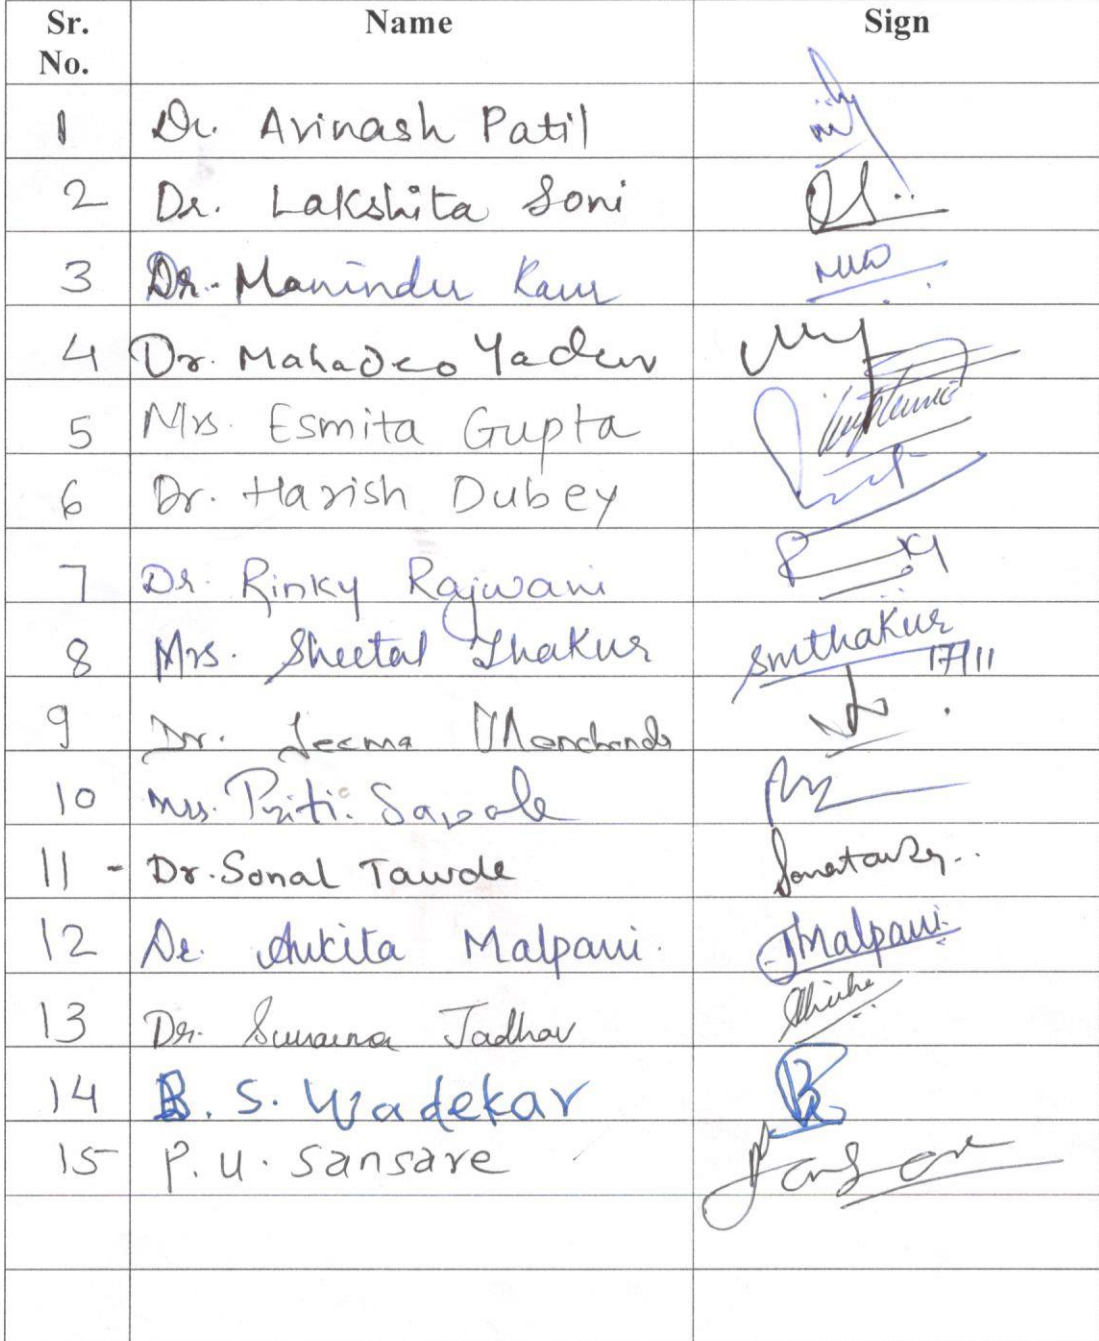 Sr. No. Name Sign
1 Dr. Avinash Patil
2 Dr. Lakshita Soni
3 Dr. Maninder Kaur
4 Dr. Mahadeo Yadav
5 Mrs. Esmita Gupta
6 Dr. Harish Dubey
7 Dr. Rinky Rajwani
8 Mrs. Sheetal Thakur smthakur 17/11
9 Dr. Seema Manchanda
10 Mrs. Priti. Savale
11 - Dr. Sonal Tawde
12 Dr. Ankita Malpani. Malpani
13 Dr. Sunaina Jadhav
14 B. S. Wadekar
15 P. U. Sansare